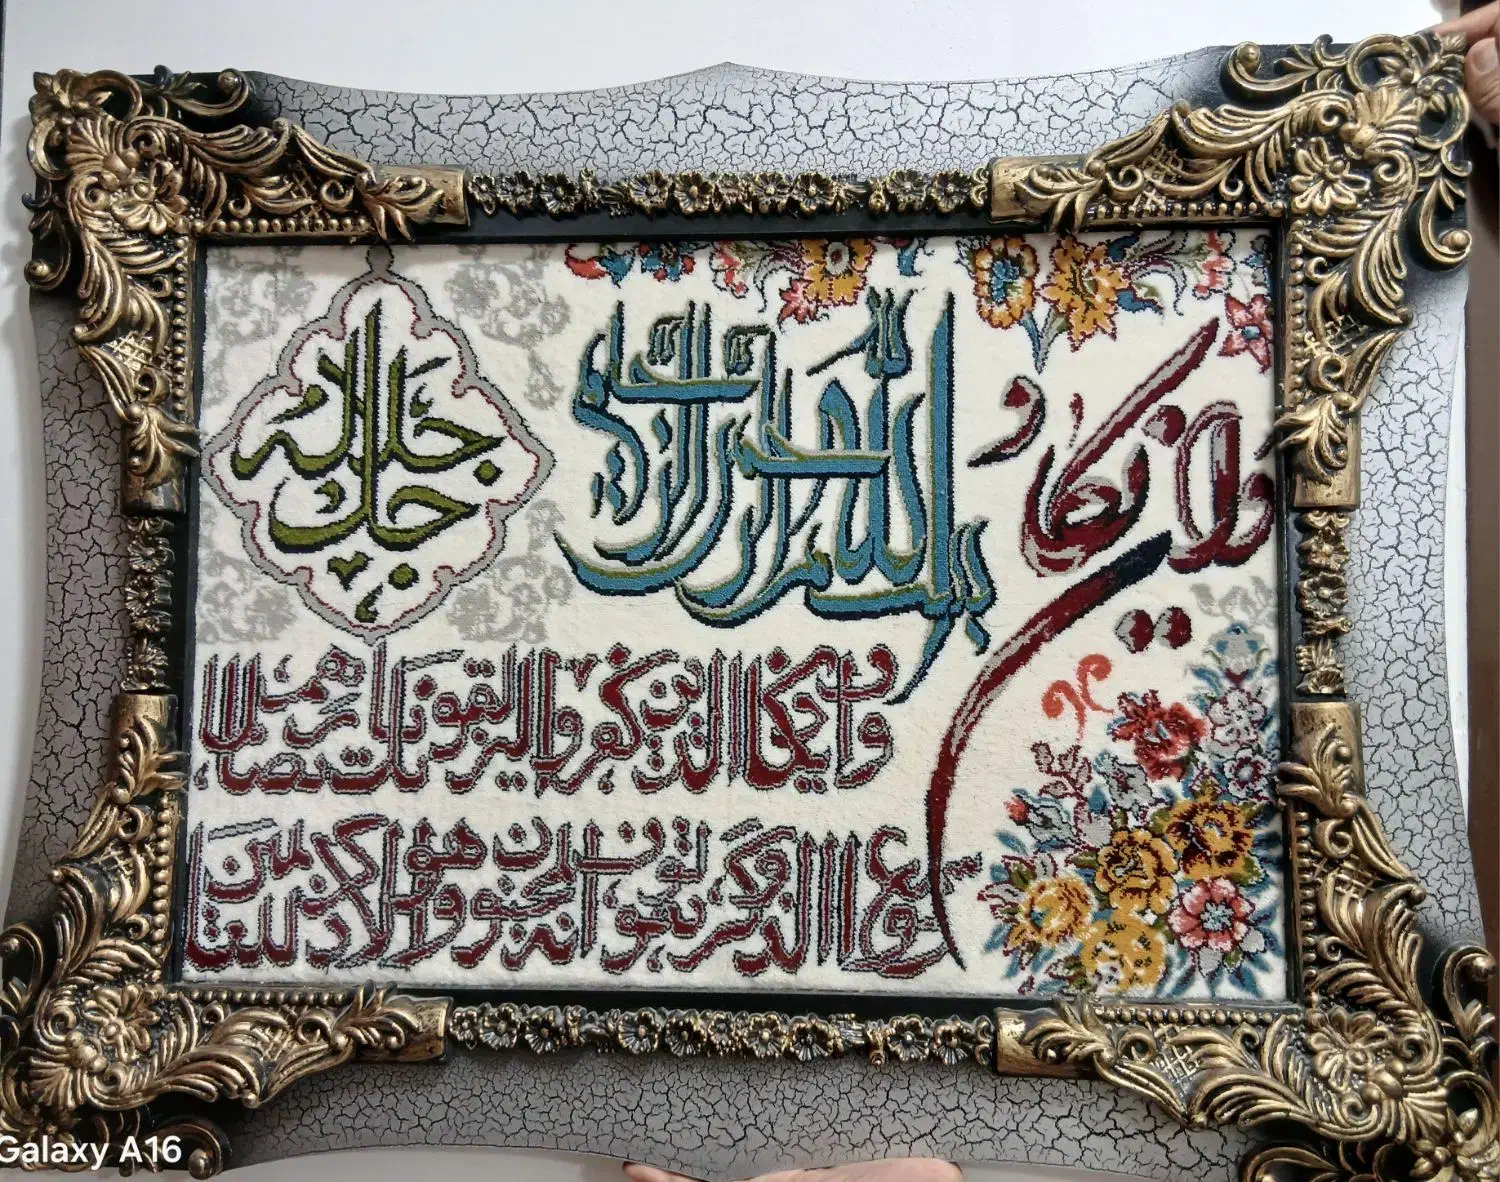 وان یکاد
بسم الله الرحمن الرحیم
جل جلاله
وان یکاد الذین کفروا لیزلقونک بابصارهم لما
سمعوا الذکر ویقولون انه لمجنون وما هو الا ذکر للعالمین
Galaxy A16